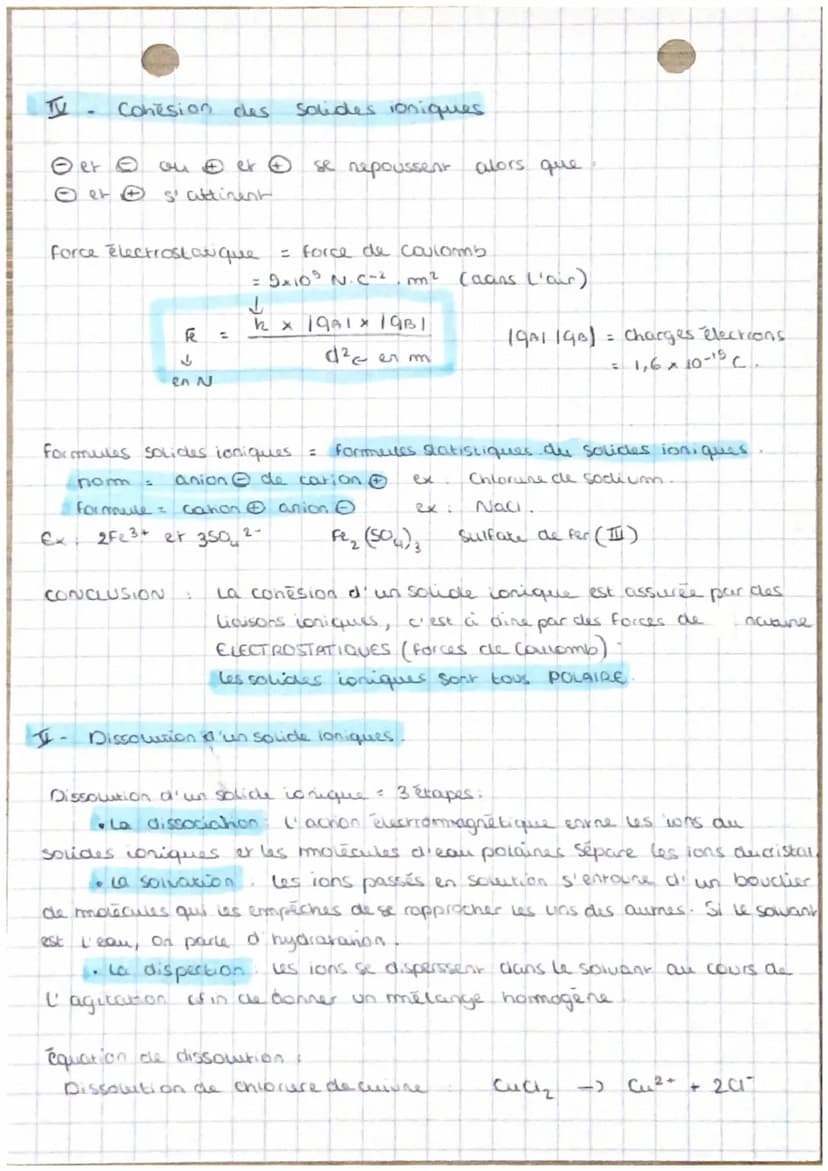 IV - Cohésion des solides ioniques
⊖ et ⊖ ou ⊕ et ⊕ se repoussent alors que
⊖ et ⊕ s'attirent
Force électrostatique = force de Coulomb
= 9x10⁹ N.C-² . m² (dans l'air)
↓
Fe = k x |qA| x |qB| / d² ← en m
↓
en N
|qA| |qB| = charges électrons
= 1,6 x 10-¹⁹ C.
Formules solides ioniques = formules statistiques du solides ioniques.
nom = anion ⊖ de cation ⊕ ex Chlorure de sodium.
Formule = cation ⊕ anion ⊖ ex : NaCl.
Ex : 2Fe³⁺ et 3SO₄²⁻ Fe₂(SO₄)₃ Sulfate de fer (III)
CONCLUSION : La cohésion d'un solide ionique est assurée par des
liaisons ioniques, c'est à dire par des forces de nature
ELECTROSTATIQUES (forces de Coulomb).
Les solides ioniques sont tous POLAIRE.
V - Dissolution d'un solide ioniques.
Dissolution d'un solide ionique = 3 étapes :
• La dissociation : L'action électromagnétique entre les ions du
solides ioniques et les molécules d'eau polaires sépare les ions du cristal.
• La solvation : Les ions passés en solution s'entoure d'un bouclier
de molécules qui les empêches de se rapprocher les uns des autres. Si le solvant
est l'eau, on parle d'hydratation.
• La dispertion : Les ions se dispersent dans le solvant au cours de
l'agitation afin de donner un mélange homogène.
équation de dissolution :
Dissolution de chlorure de cuivre : CuCl₂ → Cu²⁺ + 2Cl⁻